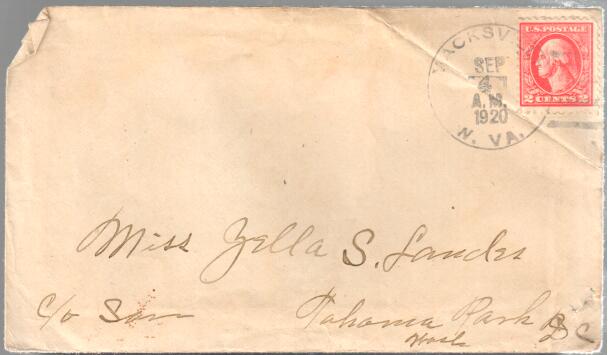 MACKSV
SEP
4
A.M.
1920
W. VA.
U.S. POSTAGE
2 CENTS 2
Miss Zella S. Landes
c/o Sam
Tahoma Park
Wash D C